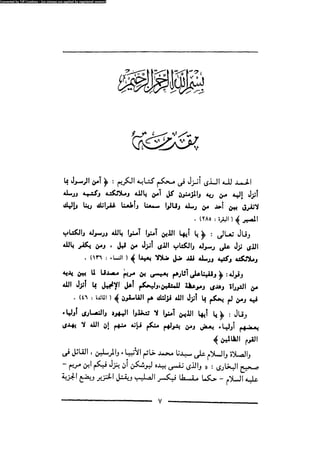 Converted by Tiff Combine - (no stamps are applied by registered version)
بسم الله الرحمن الرحيم
مقدمة
الحمد لله الذي أنزل في محكم كتابه الكريم : ﴿ آمن الرسول بما
أنزل إليه من ربه والمؤمنون كل آمن بالله وملائكته وكتبه ورسله
لا نفرق بين أحد من رسله وقالوا سمعنا وأطعنا غفرانك ربنا وإليك
المصير ﴾ ( البقرة : ٢٨٥ ) .
وقال تعالى : ﴿ يا أيها الذين آمنوا آمنوا بالله ورسوله والكتاب
الذي نزل على رسوله والكتاب الذي أنزل من قبل ، ومن يكفر بالله
وملائكته وكتبه ورسله فقد ضل ضلالا بعيدا ﴾ ( النساء : ١٣٦ ) .
وقوله : ﴿ وقفينا على آثارهم بعيسى بن مريم مصدقا لما بين يديه
من التوراة وهدى وموعظة للمتقين. وليحكم أهل الإنجيل بما أنزل الله
فيه ومن لم يحكم بما أنزل الله فأولئك هم الفاسقون ﴾ ( المائدة : ٤٦ ) .
وقال : ﴿ يا أيها الذين آمنوا لا تتخذوا اليهود والنصارى أولياء ،
بعضهم أولياء بعض ومن يتولهم منكم فإنه منهم إن الله لا يهدي
القوم الظالمين ﴾
والصلاة والسلام على سيدنا محمد خاتم الأنبياء ، والمرسلين ، القائل في
صحيح البخاري : « والذي نفسي بيده ليوشكن أن ينزل فيكم ابن مريم -
عليه السلام - حكما مقسطا فيكسر الصليب ويقتل الخنزير ويضع الجزية
٧